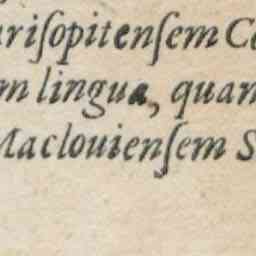 uriſopitenſem Co
m lingua, quam
Maclouienſem S